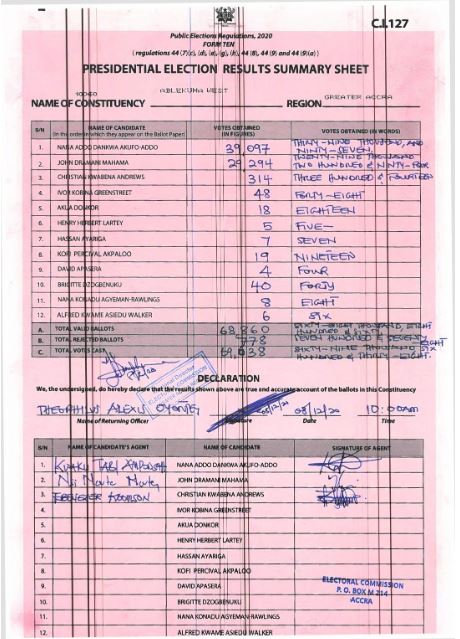 C.I.127
Public Elections Regulations, 2020
FORM TEN
(regulations 44 (7)(c), (d), (e), (g), (h), 44 (8), 44 (9) and 44 (9)(a))
PRESIDENTIAL ELECTION RESULTS SUMMARY SHEET
NAME OF CONSTITUENCY ABLEKUMA WEST REGION GREATER ACCRA
S/N NAME OF CANDIDATE VOTES OBTAINED VOTES OBTAINED (IN WORDS)
(In the order in which they appear on the Ballot Paper) (IN FIGURES)
1. NANA ADDO DANKWA AKUFO-ADDO 39,097 THIRTY-NINE THOUSAND, AND NINTY-SEVEN
2. JOHN DRAMANI MAHAMA 29,294 TWENTY-NINE THOUSAND TWO HUNDRED & NINTY-FOUR
3. CHRISTIAN KWABENA ANDREWS 314 THREE HUNDRED & FOURTEEN
4. IVOR KOBINA GREENSTREET 48 FORTY-EIGHT
5. AKUA DONKOR 18 EIGHTEEN
6. HENRY HERBERT LARTEY 5 FIVE-
7. HASSAN AYARIGA 7 SEVEN
8. KOFI PERCIVAL AKPALOO 19 NINETEEN
9. DAVID APASERA 4 FOUR
10. BRIGITTE DZOGBENUKU 40 FORTY
11. NANA KONADU AGYEMAN-RAWLINGS 8 EIGHT
12. ALFRED KWAME ASIEDU WALKER 6 SIX
A. TOTAL VALID BALLOTS 68,860 SIXTY-EIGHT THOUSAND, EIGHT HUNDRED & SIXTY
B. TOTAL REJECTED BALLOTS 778 SEVEN HUNDRED & SEVENTY EIGHT
C. TOTAL VOTES CAST 69,638 SIXTY-NINE THOUSAND SIX HUNDRED & THIRTY-EIGHT.
DECLARATION
We, the undersigned, do hereby declare that the results shown above are true and accurate account of the ballots in this Constituency
THEOPHILUS ALEXIS 08/12/20 10:00am
Name of Returning Officer Signature Date Time
S/N NAME OF CANDIDATE'S AGENT NAME OF CANDIDATE SIGNATURE OF AGENT
1. NANA ADDO DANKWA AKUFO-ADDO
2. JOHN DRAMANI MAHAMA
3. EBENEZER ADDISON CHRISTIAN KWABENA ANDREWS
4. IVOR KOBINA GREENSTREET
5. AKUA DONKOR
6. HENRY HERBERT LARTEY
7. HASSAN AYARIGA
8. KOFI PERCIVAL AKPALOO
9. DAVID APASERA
10. BRIGITTE DZOGBENUKU
11. NANA KONADU AGYEMAN-RAWLINGS
12. ALFRED KWAME ASIEDU WALKER
ELECTORAL COMMISSION
P. O. BOX M 214
ACCRA